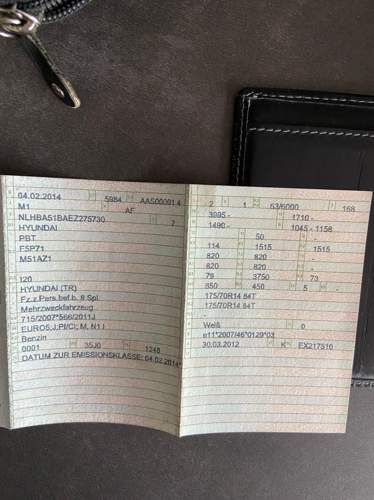 04.02.2014 5984 AAS00001 4
M1 AF
NLHBA51BAEZ275730 7
HYUNDAI
PBT
F5P71
M51AZ1
i20
HYUNDAI (TR)
Fz.z.Pers.bef.b. 8 Spl.
Mehrzweckfahrzeug
715/2007*566/2011J
EURO5;J;PI/CI; M, N1 I
Benzin
0001 35J0 1248
DATUM ZUR EMISSIONSKLASSE: 04.02.2014*
2 1 63/6000 168
3995 - 1710 -
1490 - 1045 - 1158
- 50 -
114 1515 1515
820 820 -
820 820 -
79 3750 73
650 450 5 -
175/70R14 84T
175/70R14 84T
-
Weiß 0
e11*2007/46*0129*03
30.03.2012 K EX217510